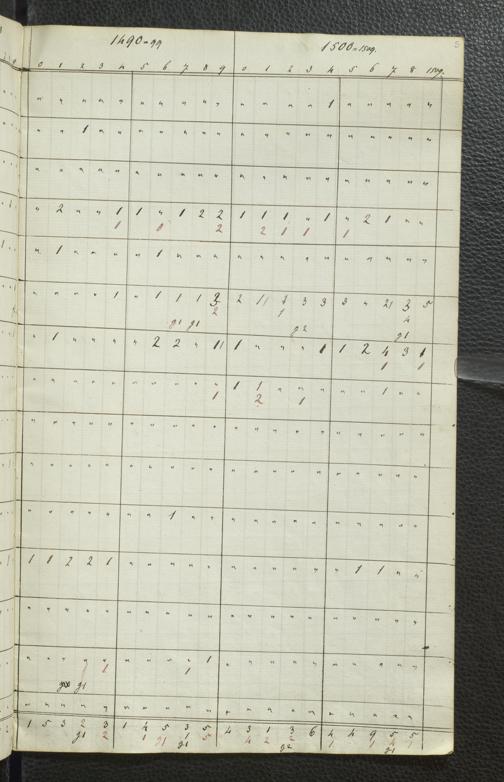 1490-99 1500-1509.
0 1 2 3 4 5 6 7 8 9 0 1 2 3 4 5 6 7 8 1509.
" " " " " " " " " " " " " " 1 " " " " "
" " 1 " " " " " " " " " " " " " " " " "
" " " " " " " " " " " " " " " " " " " "
" 2 " " 1 1 " 1 2 2 1 1 1 " 1 " 2 1 " "
1 2 2 1 1 1
" 1 " " " " 1 " " " " " " " " " " " " "
" " " " 1 " 1 1 1 2 3 3 3 " 5
2 1 4
g1 g1 g2 g1
" 1 " " " " 2 2 " 11 1 " " " 1 1 2 4 3 1
1 1
" " " " " " " " " " 1 1 " " " " " 1 " "
1 2 1
" " " " " " " " " " " " " " " " " " " "
" " " " " " " " " " " " " " " " " " " "
" " " " " " " 1 " " " " " " " " " " " "
1 1 2 2 1 " " " " " " " " " " " 1 1 " "
" " " " " " " " " " " " " " " " " " " "
" " " " " " " " " 1 " " " " " " " " " "
1 1 1
g1
" " " " " " " " " " " " " " " " " " " "
1 5 3 2 3 1 4 5 3 5 4 3 1 3 6 4 4 9 5 5
g1 2 1 1 5 4 2 2 1 1
g1 g2 g1